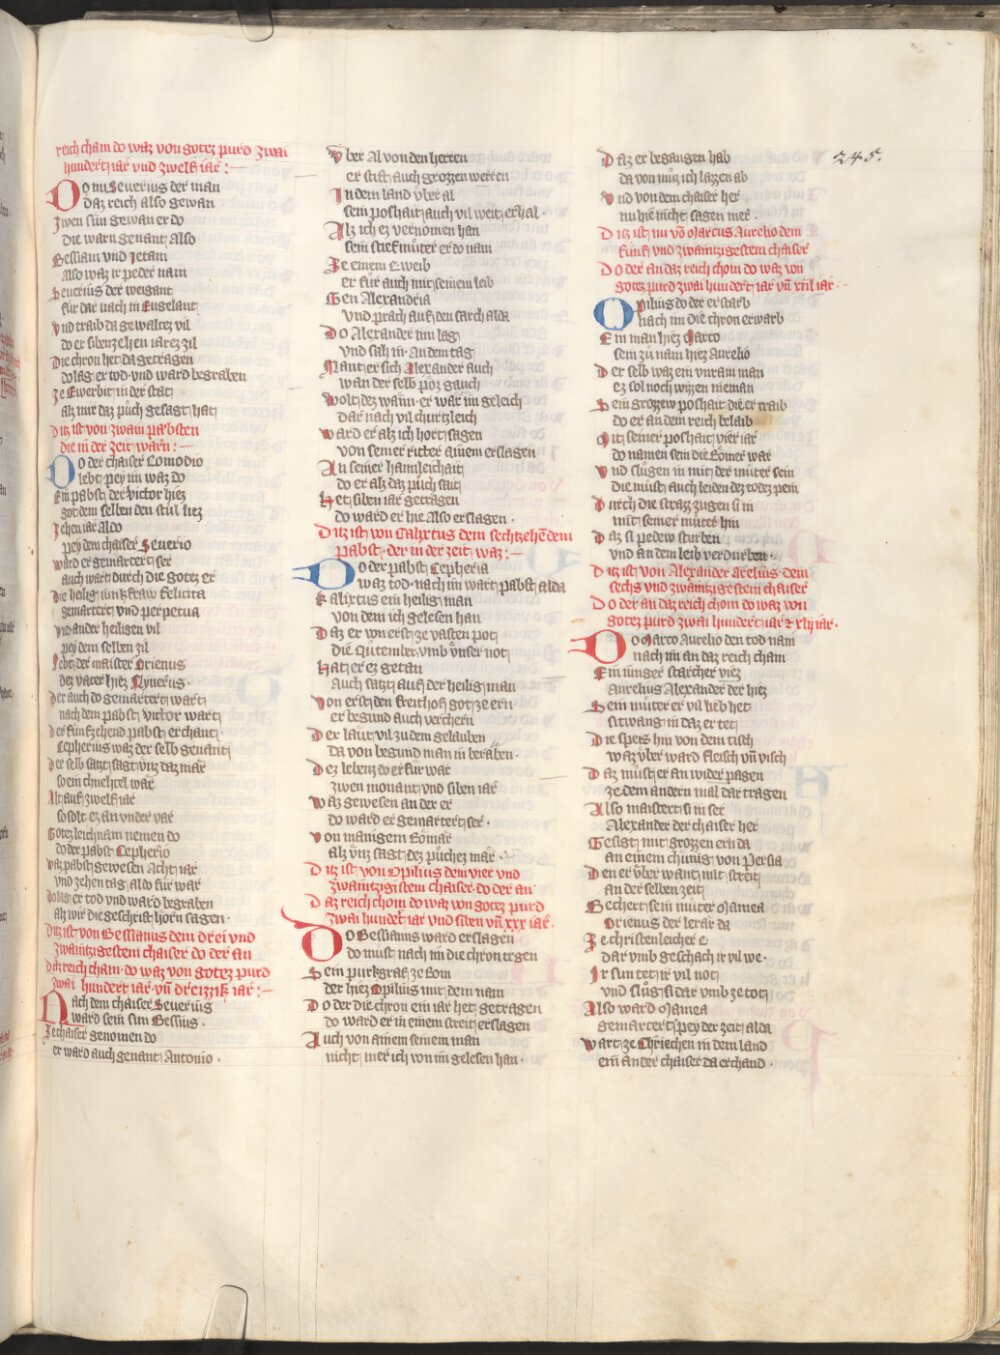 reich cham do waz von gotez purd zwai
hundert iar vnd zwelf iar :
Do nu Seuerius der man
daz reich also gewan
Zwen sun gewan er do
die warn genant also
Bessiam vnd Jetam
also waz ir peder nam
Seuerius der weigant
fur dar nach in Engelant
Vnd traib da gewaltez vil
do er sibenzehen iarez zil
Die chron het da getragen
do lag er tod vnd ward begraben
Ze Ewerbik in der stat
alz mir daz půch gesagt hat
Ditz ist von zwain pabsten
die in der zeit warn :
Do der chaiser Comodio
lebt pey im waz do
Ein pabst der victor hiez
got dem selben den stůl liez
Zehen iar aldo
pey dem chaiser Seuerio
Ward er gemartert ser
auch wart durch die gotez er
Die heilig iunkfraw felicita
gemartert vnd perpetua
Vnd ander heiligen vil
pey dem selben zil
Lebt der maister Orienus
dez vater hiez Lyuerus ·
Der auch do gemartert wart
nach dem pabst victor wart
Der funfzehend pabst erchant
Cepherius waz der selb genant
Der selb satzt sagt vnz daz mär
so ein christen wär
Alt auf zwelf iar
so solt ez an vnder var
Gotez leichnam nemen do
do der pabst Cepherio
Waz pabst gewesen Acht iar
vnd zehen tag aldo fur war
Do lag er tod vnd ward begraben
alz wir die geschrift horn sagen ·
Ditz ist von Bessianus dem drei vnd
zwaintzigestem chaiser do der an
Daz reich cham do waz von gotez purd
zwai hundert iar vnd dreizzik iar :
Nach dem chaiser Seuerius
ward sein sun Bessius ·
Ze chaiser genomen do
er ward auch genant Antonio ·
Vber Al von den herren
er stift auch grozzen werren
In dem land vber al
sein poshait auch vil weit erhal ·
Alz ich ez vernomen han
sein stiefmůter er do nam
Ze einem e weib
er fur auch mit seinem leib
Gen Alexandria
Vnd prach auf den sarch alda
Do Alexander inn lag
Vnd sah in An dem tag
Nant er sich Alexander auch
wan der selb pöz gauch
Wolt dez wänn er wär im geleich
dar nach vil churtzleich
Ward er alz ich hort sagen
von seiner ritter ainem erslagen
An seiner haimleichait
do er alz daz půch sait
Het siben iar getragen
do ward er hie Also erslagen ·
Ditz ist von Calixtus dem sechtzehendem
pabst · der in der zeit waz :
Do der pabst Cepheria
waz tod · nach im wart pabst alda
Kalixtus ein heilig man
von dem ich gelesen han
Daz er von erst ze vasten pot
die Qutember vmb vnser not
Hat er ez getan
Auch satzt auf der heilig man
Von erst den freithof got ze ern
er begund auch verchern
Der läut vil zu dem gelauben
da von begund man in berauben ·
Dez lebenz do er fur war
zwen monant vnd siben iar
Waz gewesen an der er
do ward er gemartert ser ·
Von mänigem Römär
alz vnz sagt dez půchez mär ·
Ditz ist von Opilius dem vier vnd
zwaintzigistem chaiser do der an
Daz reich chom do waz von gotez purd
zwai hundert iar vnd siben vnd xxx iar ·
Do Bessianus ward erslagen
do must nach im die chron tragen
Sein purkgraf ze Rom
der hiez Opilius mit dem nam
Do der die chron ein iar het getragen
do ward er in einem streit erslagen
Auch von ainem seinem man
nicht mer ich von im gelesen han ·
Daz er begangen hab
da von můz ich lazzen ab
Vnd von dem chaiser her
nu hie nicht sagen mer ·
Ditz ist nu von Marcus Aurelio dem
funf vnd zwaintzigestem chaiser
Do der an daz reich chom do waz von
gotz purd zwai hundert iar vnd xviii iar ·
Opilius do der erstarb
nach im die chron erwarb
Ein man hiez Marco
sein zů nam hiez Aurelio
Der selb waz ein vnrain man
ez sol noch wizzen nieman
Sein grozzew poshait die er traib
do er an dem reich belaib
Mit seiner poshait vier iar
do namen sein die Römer war
Vnd slůgen in mit der můter sein
die můst auch leiden dez todez pein
Durch die strazz zugen si in
mit seiner můter hin
Daz si pedew sturben
vnd an dem leib verdurben ·
Ditz ist von Alexander Arelius dem
sechs vnd zwaintzigestem chaiser
Do der an daz reich chom do waz von
gotez purd zwai hundert iar & xlij iar ·
Do Marco Aurelio den tod nam
nach im an daz reich cham
Ein iunger starcher viez
Aurelius Alexander der hiez
Sein můter er vil lieb het
si twang in daz er tet
Die speis hin von dem tisch
waz vber ward fleisch vnd visch
Daz můst er an wider pagen
ze dem andern mal dar tragen
Also maistert si in ser
Alexander der chaiser her
Gesigt mit grozzen ern da
an einem chünig von Persia
Den er vber want mit streit
an der selben zeit
Bechert sein můter Mamea
Orienus der lerär da
Ze christenleicher e
dar vmb geschach ir vil we ·
Ir sun tet ir vil not
vnd slůg si dar vmb ze tot
Also ward Mamea
gemartert pey der zeit alda
Wart ze Chriechen in dem land
ein ander chaiser da erchand ·
245.